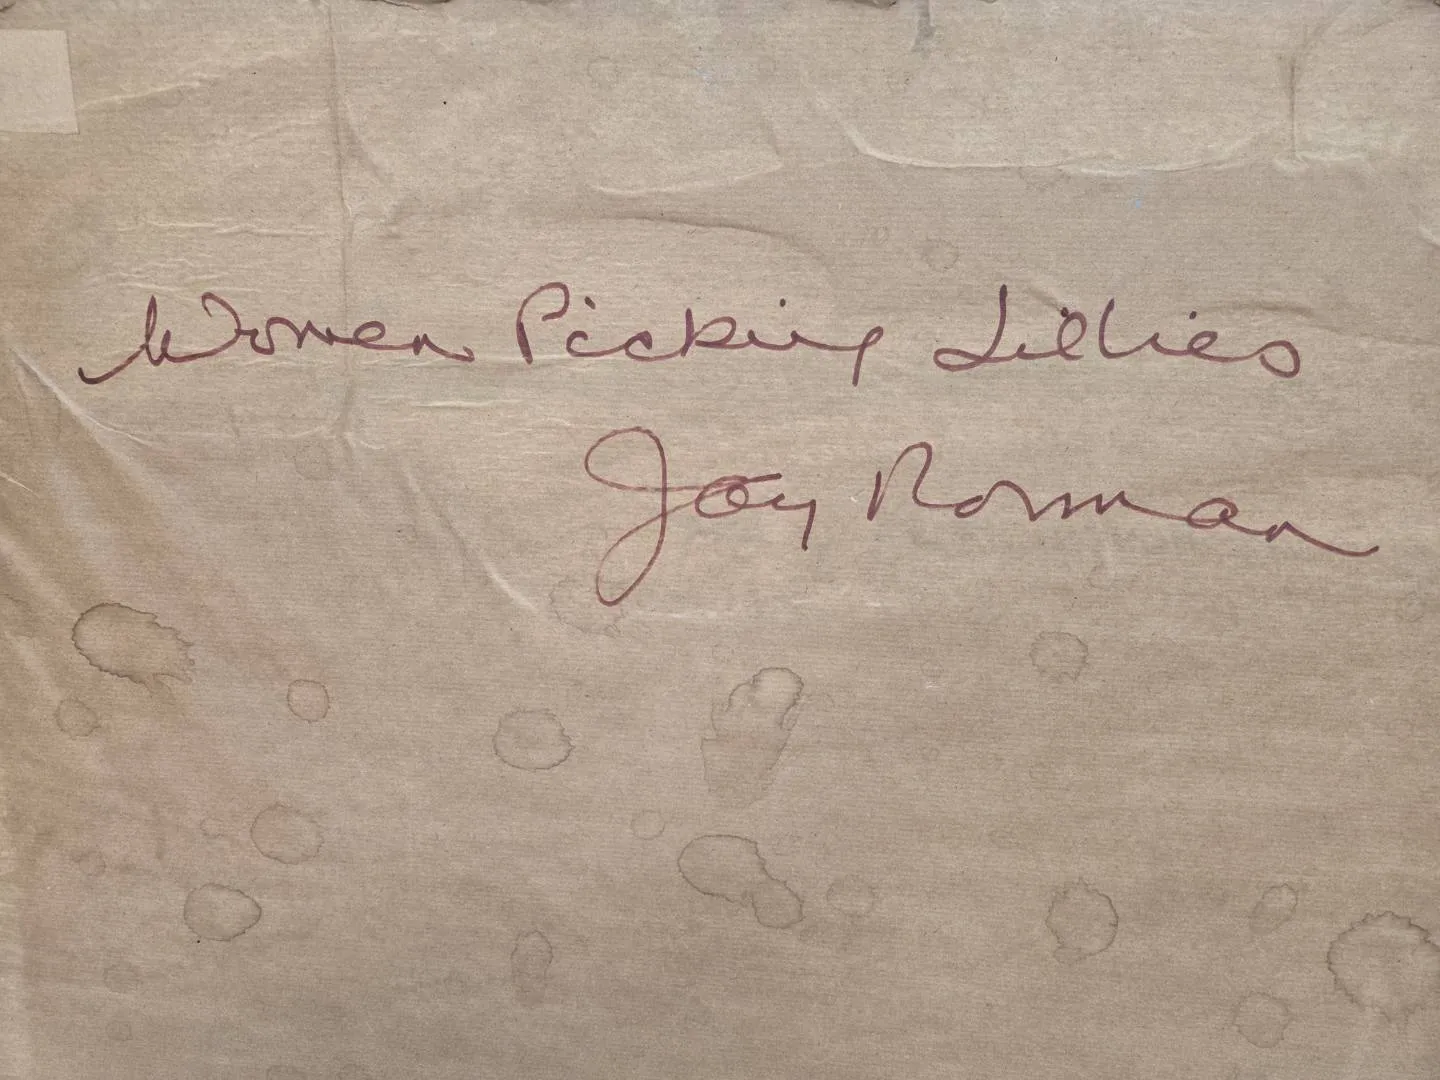 Women Picking Lillies
Joy Rorman